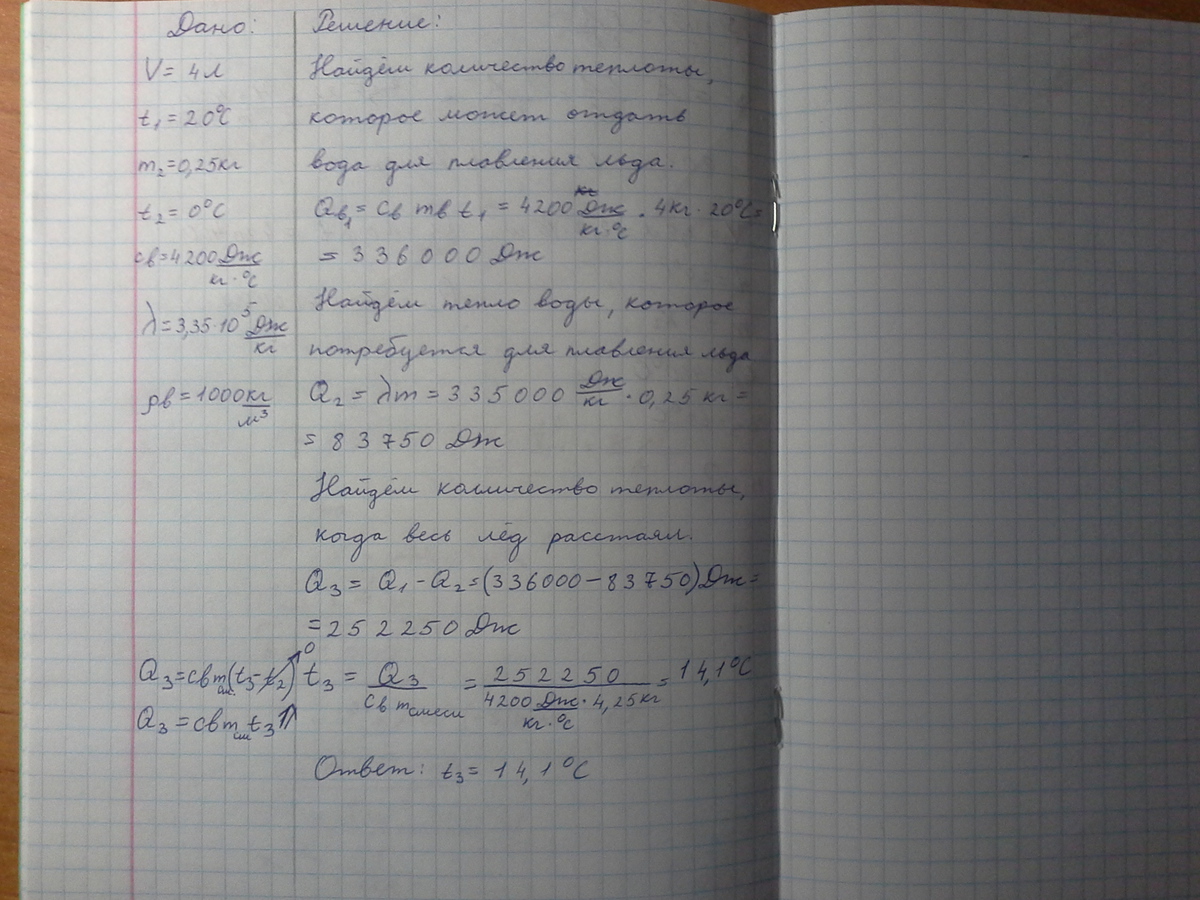 Дано:
V = 4л
t₁ = 20°C
m₂ = 0,25кг
t₂ = 0°C
cв = 4200 Дж/кг·°C
λ = 3,35·10⁵ Дж/кг
ρв = 1000 кг/м³
Решение:
Найдём количество теплоты,
которое может отдать
вода для плавления льда.
Qв₁ = cв mв t₁ = 4200 Дж/кг·°C · 4кг · 20°C =
= 336000 Дж
Найдём тепло воды, которое
потребуется для плавления льда
Q₂ = λm = 335000 Дж/кг · 0,25 кг =
= 83750 Дж
Найдём количество теплоты,
когда весь лёд растаял.
Q₃ = Q₁ - Q₂ = (336000 - 83750) Дж =
= 252250 Дж
Q₃ = cвmсм.(t₃ - t₂) 0
Q₃ = cвmсм t₃ ⇑
t₃ = Q₃/cв mсмеси = 252250/4200 Дж/кг·°C · 4,25кг = 14,1°C
Ответ: t₃ = 14,1°C